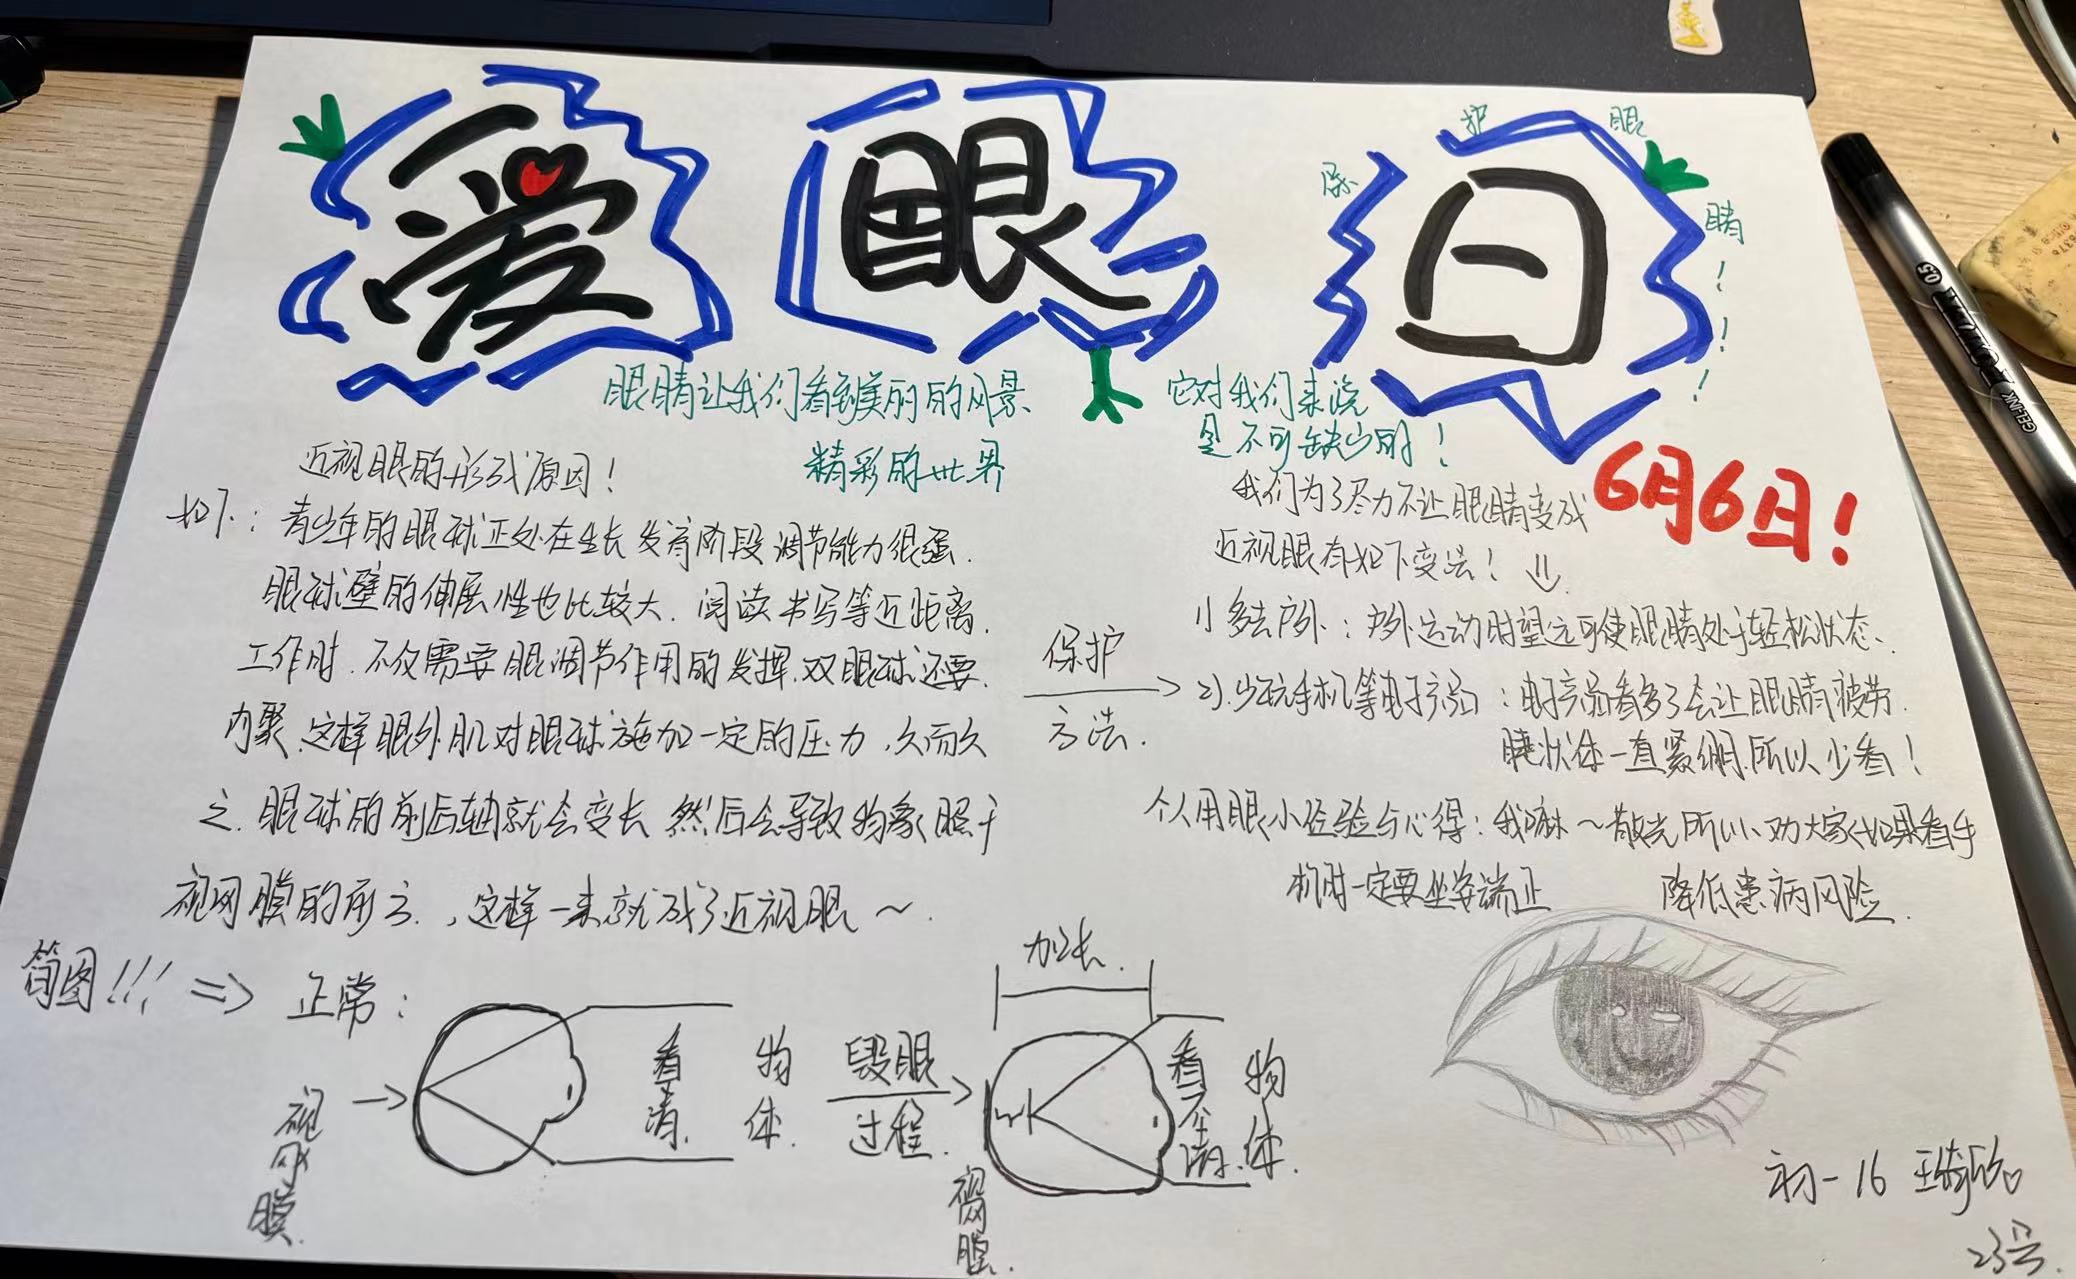 爱眼日
保护眼睛!!!
眼睛让我们看到美丽的风景
精彩的世界
它对我们来说
是不可缺少的!
6月6日!
近视眼的形成原因!
如下:青少年的眼球正处在生长发育阶段调节能力很强.
眼球壁的伸展性也比较大.阅读书写等近距离.
工作时.不仅需要眼调节作用的发挥.双眼球还要.
内聚.这样眼外肌对眼球施加一定的压力,久而久
之.眼球的前后轴就会变长然后会导致物象照于
视网膜的前方.,这样一来就成了近视眼~.
保护
方法.
我们为了尽力不让眼睛变成
近视眼有如下变法!
1)多去户外:户外运动时望远可使眼睛处于轻松状态、
2).少玩手机等电子产品:电子产品看多了会让眼睛疲劳.
睫状体一直紧绷.所以少看!
个人用眼小经验与心得:我嘛~散光所以劝大家如果看手
机时一定要坐姿端正 降低患病风险.
简图!!!⇒ 正常:
视网膜.
看清. 物体.
毁眼
过程.
加长.
看不清. 物体.
视网膜.
初一16
23号.
CELINK
0.5